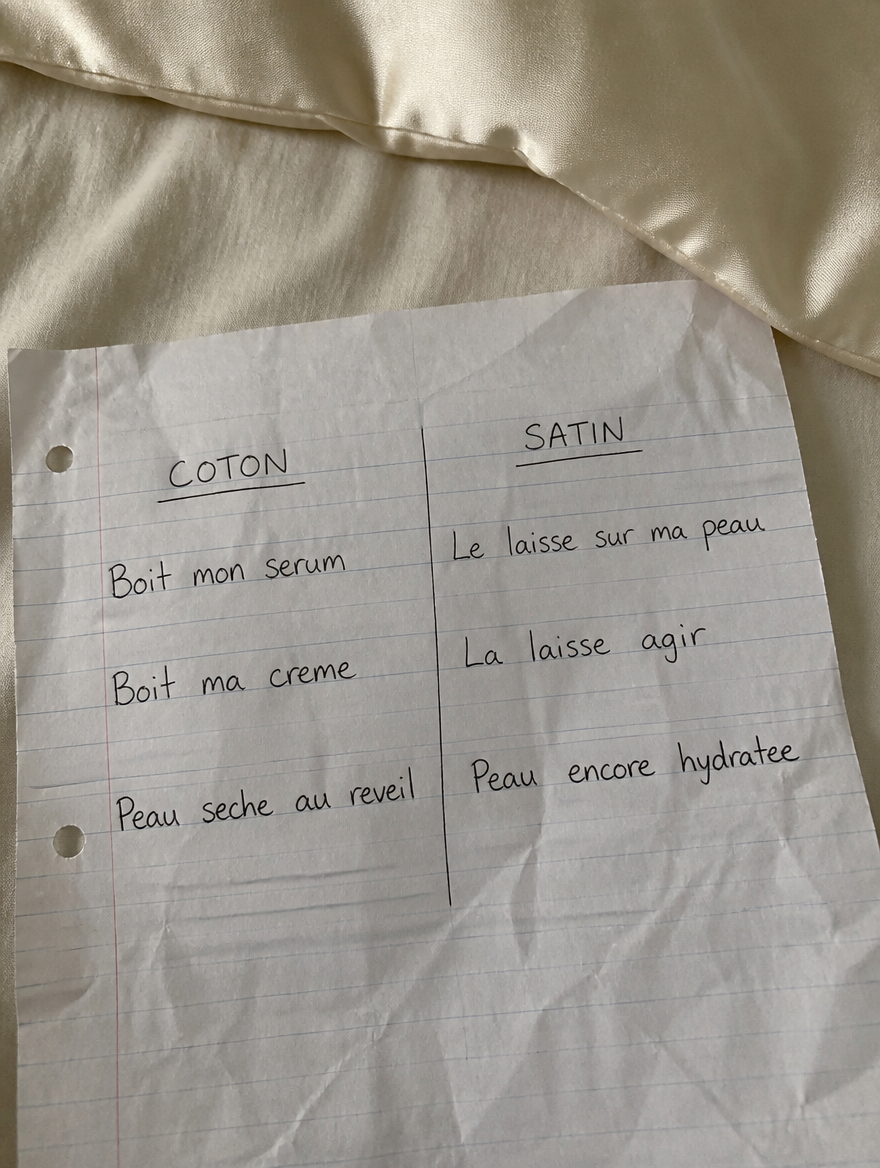 COTON
SATIN
Boit mon serum
Le laisse sur ma peau
Boit ma creme
La laisse agir
Peau seche au reveil
Peau encore hydratee